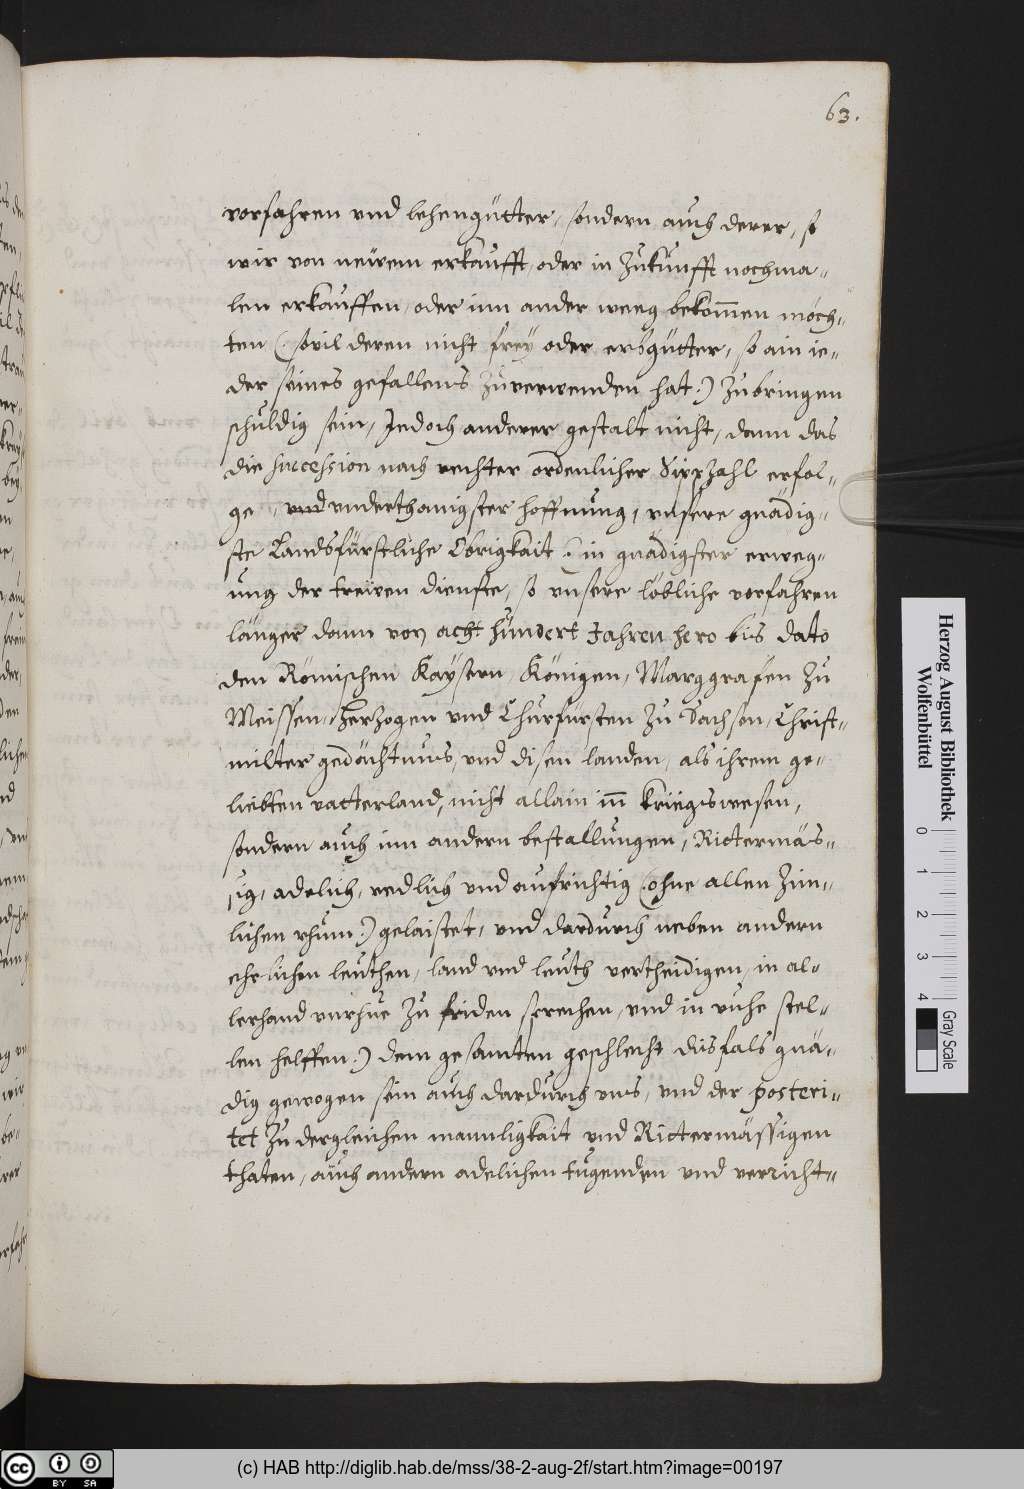 63.
vorfahren vnd lehengütter, sondern auch derer, so
wir von neẅem erkaufft, oder in Zukunfft nochma-
len erkauffen, oder inn ander weeg bekom̄en möch-
ten (: sovil deren nicht freÿ oder erbgütter, so ain ie-
der seines gefallens Zuverwenden hat :) Zubringen
schuldig sein, Jedoch anderer gestalt nicht, dann das
die Succession nach rechter ordenlicher Sippzahl erfol-
ge, vnd vnderthanigster hoffnung, vnsere gnädig-
ste Landsfürstliche Obrigkait (: in gnädigster erweg-
ung der treẅen dienste, so vnsere löbliche vorfahren
länger dann von acht hundert Jahren hero bis dato
den Römischen Kaÿsern, Königen, Marggrafen Zu
Meissen, Herzogen vnd Churfürsten Zu Sachsen, Christ-
milter gedächtnus, vnd disen landen, als ihrem ge-
liebten vatterland, nicht allain in̄ kriegswesen,
sondern auch inn andern bestallungen, Rittermäs-
sig, adelich, redlich vnd aufrichtig (: ohne allen Zim-
lichen rhum :) gelaistet, vnd dardurch neben andern
ehrlichen leuthen, land vnd leuth vertheidigen, in al-
lerhand vnrhue Zu friden sprechen, vnd in ruhe stel-
len helffen :) dem gesamten geschlecht disfals gnä-
dig gewogen sein auch dardurch vns, vnd der posteri-
tet Zu dergleichen mannligkait vnd Rittermässigen
thaten, auch andern adelichen tugenden vnd verricht-
Herzog August Bibliothek
Wolfenbüttel
0 1 2 3 4
Gray Scale
cc BY SA
(c) HAB http://diglib.hab.de/mss/38-2-aug-2f/start.htm?image=00197